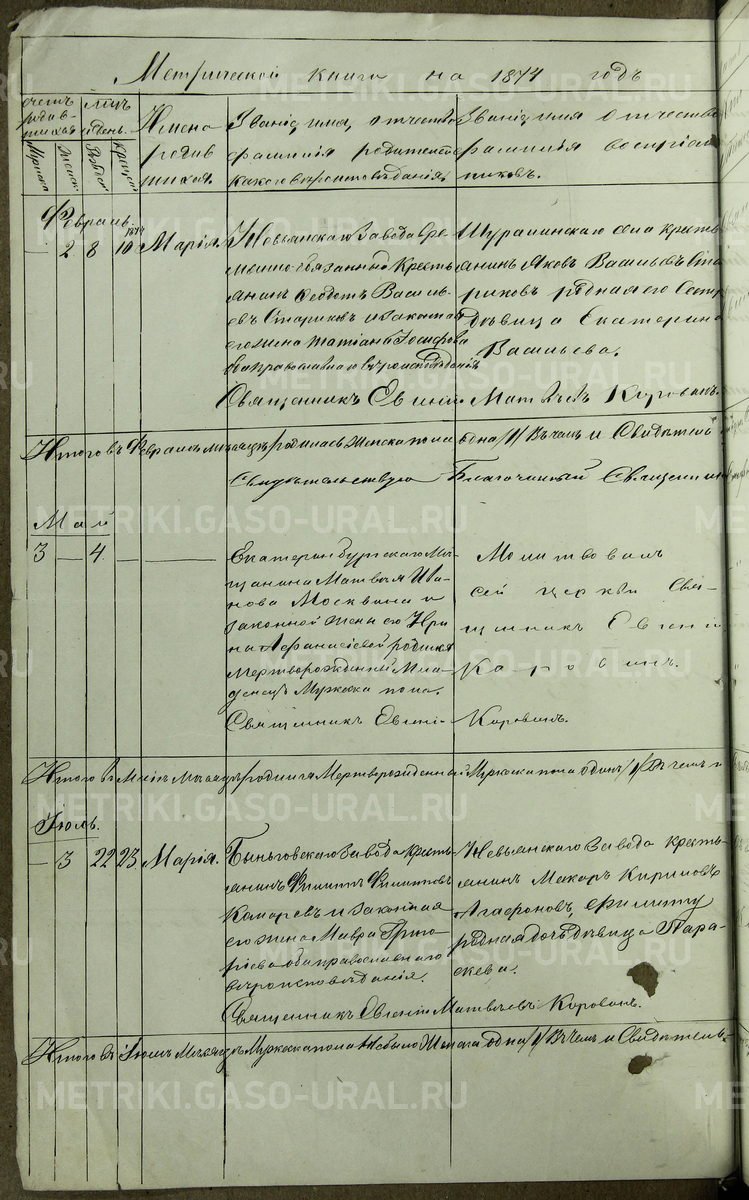 Метрической книги на 1874 годъ
счетъ родив-шихся
Мѣсяцъ и день.
Имена родив шихся.
Званіе, имя, отчество
фамилія родителей
какого вѣроисповѣданія.
Званіе, имя отчество
фамилія воспріем
никовъ.
Мужеска Женска Рожд Крещен
Февраль.
— 2 8 10 Марія.
Невьянскаго Завода вре
менно-обязанный кресть
янинъ Ѳеодотъ Василь
евъ Стариковъ и законная
его жена Татіана Іосифова
оба православнаго вѣроисповѣданія
Шуралинскаго села кресть
янинъ Яковъ Васильевъ Ста
риковъ родная его сестра
Дѣвица Екатерина
Васильева.
Священникъ Евгеній Матвѣевъ Коровинъ.
Итого въ Февралѣ мѣсяцѣ родилась женска пола одна /1/ Въ чемъ и Свидѣтел
Свидѣтельствую Благочинный Священник
Май
3 — 4 — —
Екатеринбургскаго Мѣ-
щанина Матвѣя Ива-
нова Москвина и
законной жены его Ири
ны Афанасіевой родился
мертворожденный мла-
денецъ Мужеска пола.
Молитвовалъ
сей церкви Свя-
щенникъ Евгеній
Коровинъ.
Священникъ Евгеній Коровинъ.
Итого въ Маѣ мѣсяцѣ родился Мертворожденный Мужеска пола одинъ /1/ Въ чемъ и
Іюль.
— 3 22 23 Марія.
Быньговскаго Завода кресть
янинъ Филиппъ Филипповъ
и законная
его жена Мавра Григо
рьева оба православнаго
вѣроисповѣданія.
Невьянскаго Завода кресть-
янинъ Макаръ Кириловъ
Агафоновъ, Филиппу
родная дочь дѣвица Пара-
скева.
Священникъ Евгеній Матвѣевъ Коровинъ.
Итого въ Іюлѣ Мѣсяцѣ Мужеска пола не было Женска одна /1/ Въ чемъ и Свидѣтель-
METRIKI.GASO-URAL.RU